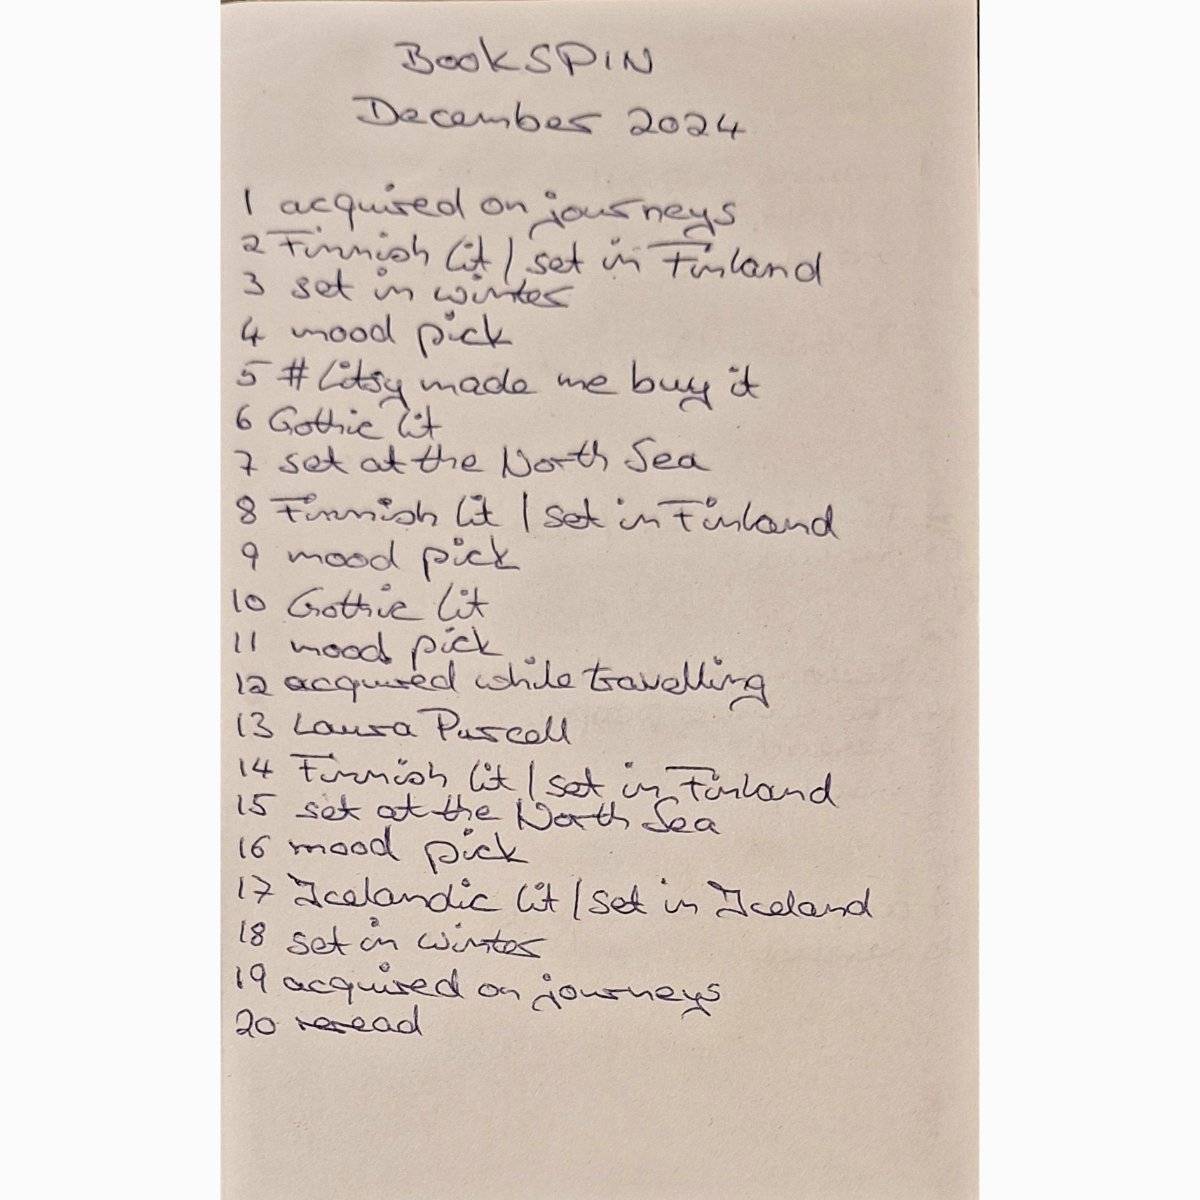 BookSPIN
December 2024
1 acquired on journeys
2 Finnish lit | set in Finland
3 set in winter
4 mood pick
5 # Litsy made me buy it
6 Gothic lit
7 set at the North Sea
8 Finnish lit | set in Finland
9 mood pick
10 Gothic lit
11 mood pick
12 acquired while travelling
13 Laura Purcell
14 Finnish lit | set in Finland
15 set at the North Sea
16 mood pick
17 Icelandic lit | set in Iceland
18 set in winter
19 acquired on journeys
20 reread